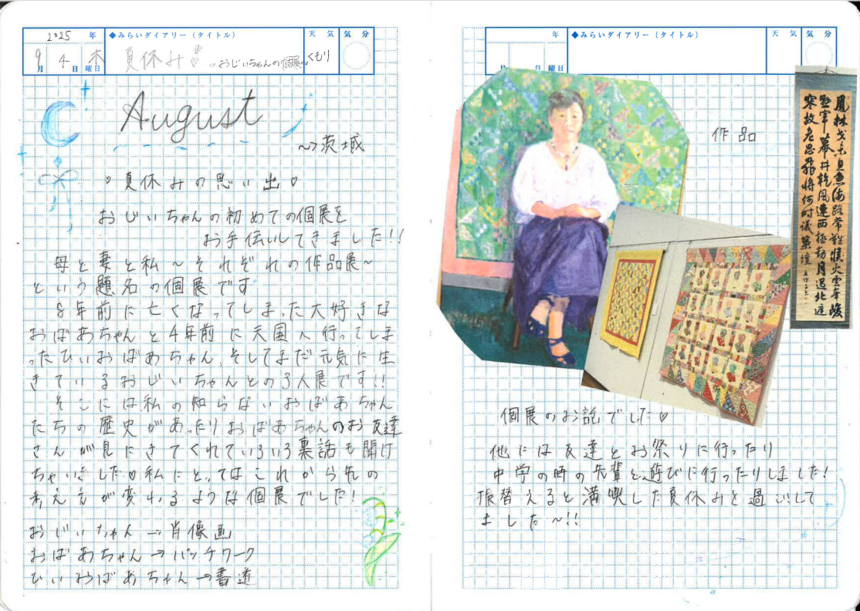 2025 年
◆みらいダイアリー(タイトル)
天気
気分
9月 4日 木曜日
夏休み!
〜おじいちゃんの個展〜
くもり
August
〜→茨城
夏休みの思い出♡
おじいちゃんの初めての個展を
お手伝いしてきました!!
母と妻と私〜それぞれの作品展〜
という題名の個展です
8年前に亡くなってしまった大好きな
おばあちゃんと4年前に天国へ行ってしま
ったひいおばあちゃん、そしてまだ元気に生
きているおじいちゃんとの3人展です!!
そこには私の知らないおばあちゃん
たちの歴史があったりおばあちゃんのお友達
さんが見にきてくれていろいろ裏話も聞け
ちゃいました♡私にとってはこれから先の
考え方が変わるような個展でした!
おじいちゃん→肖像画
おばあちゃん→パッチワーク
ひいおばあちゃん→書道
年
◆みらいダイアリー(タイトル)
天気
気分
月 日 曜日
作品
個展のお話でした♡
他には友達とお祭りに行ったり
中学の時の先輩と遊びに行ったりしました!
振替えると満喫した夏休みを過いして
ました〜!!